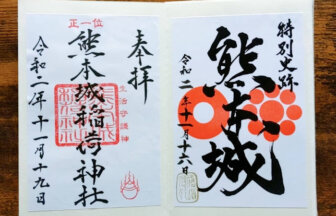 特別史跡
熊本城
令和二年十一月十六日
奉拝
正一位
熊本城稲荷神社
生活守護神
令和二年十一月十九日